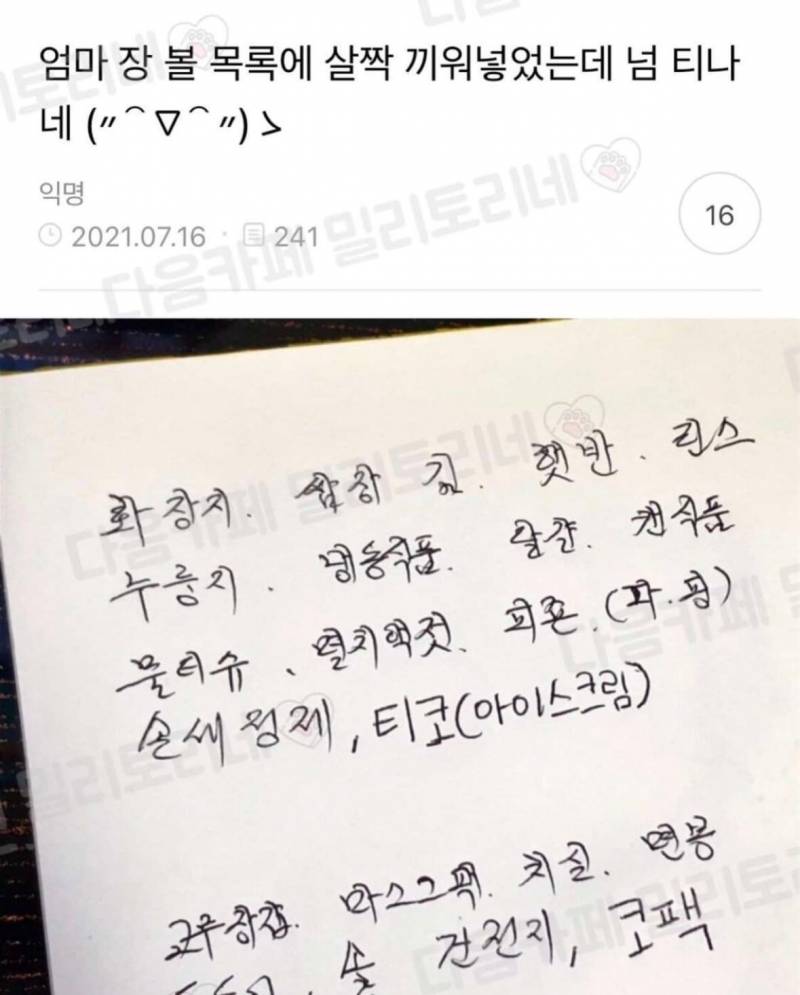 엄마 장 볼 목록에 살짝 끼워넣었는데 넘 티나
네 (〃⌒∇⌒〃)ゝ
익명
2021.07.16 · 241
16
화장지. 쌈장 김. 햇반. 린스
누룽지. 냉동식품. 달걀. 캔식품
물티슈. 멸치액젓. 피죤. (파.핑)
손세정제, 티코(아이스크림)
고무장갑. 마스크팩. 치실. 면봉
솔 건전지, 코팩
다음카페 밀리토리네